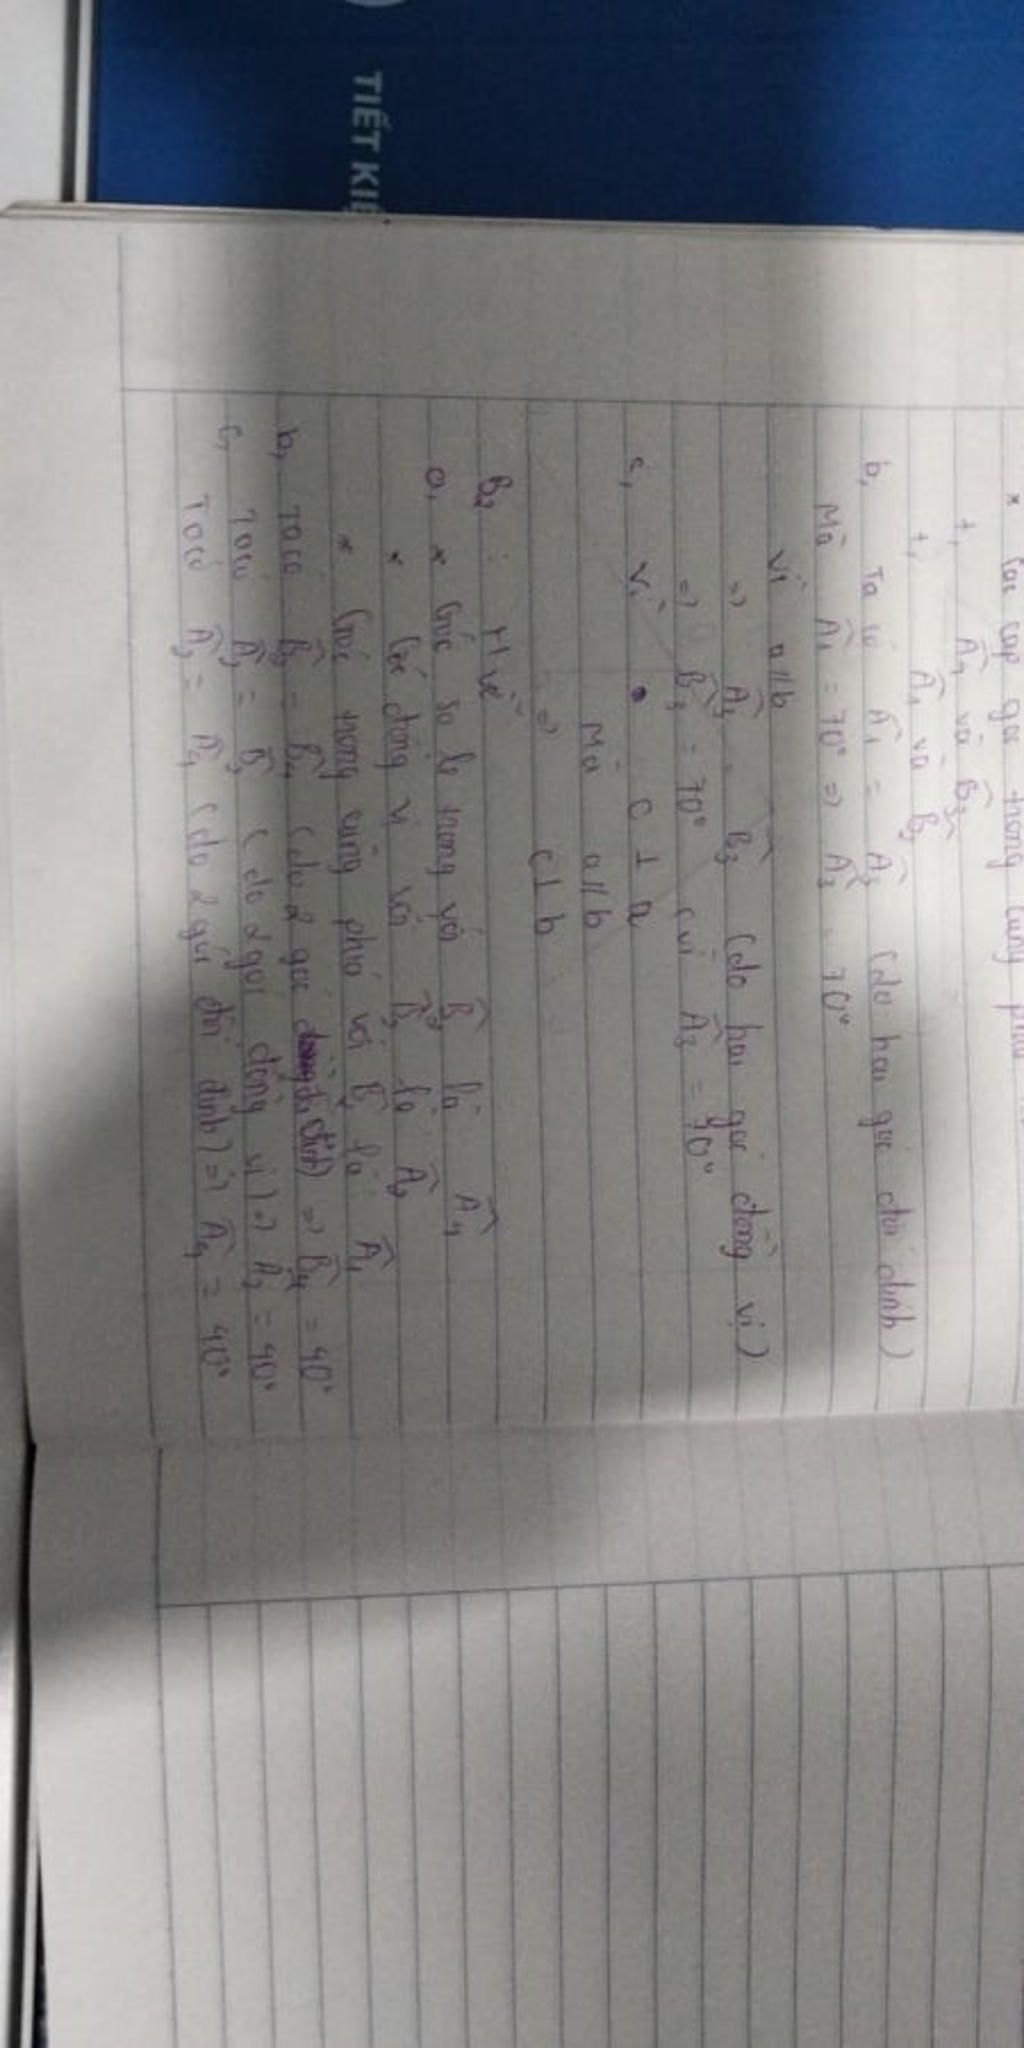 TIẾT KIỆ
* Các cặp góc trong cùng phía
+, Â4 và B̂3
+, Â1 và B̂2
b, Ta có Â1 = Â3 (do hai góc đối đỉnh)
Mà Â1 = 70° => Â3 = 70°
Vì a//b
=> Â3 = B̂3 (do hai góc đồng vị)
=> B̂3 = 70° (vì Â3 = 70°
c, Vì c ⊥ a
Mà a//b
=> c ⊥ b
B2: H.vẽ
a, * Góc so le trong với B̂ là Â4
* Góc đồng vị với B̂2 là Â2
* Góc trong cùng phía với B̂ là Â1
b, Ta có B̂2 = B̂4 (do 2 góc đối đỉnh) => B̂4 = 40°
c, Ta có Â2 = B̂2 (do 2 góc đồng vị) => Â2 = 40°
Ta có Â2 = Â4 (do 2 góc đối đỉnh) => Â4 = 40°